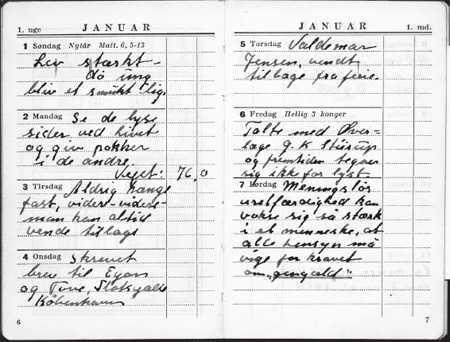 1. uge JANUAR
1 Søndag Nytår Matt. 6, 5-13
Lev stærkt -
dø ung
bliv et smukt lig.
2 Mandag Se de lyse
sider ved livet
og giv pokker
i de andre.
Vejet: 76,0
3 Tirsdag Aldrig hænge
fast, videre-videre-
man kan altid
vende tilbage
4 Onsdag skrevet
brev til Egon
og Tove,
København
6
JANUAR 1. md.
5 Torsdag Valdemar
Jensen, vendt
tilbage fra ferie.
6 Fredag Hellig 3 konger
Talte med Over-
læge G.K. Stürup
og fremtiden tegner
sig ikke for lyst.
7 Lørdag Meningsløs
uretfærdighed kan
vække sig så stærk
i et menneske, at
alle hensyn må
vige for kravet
om "gengæld"
7